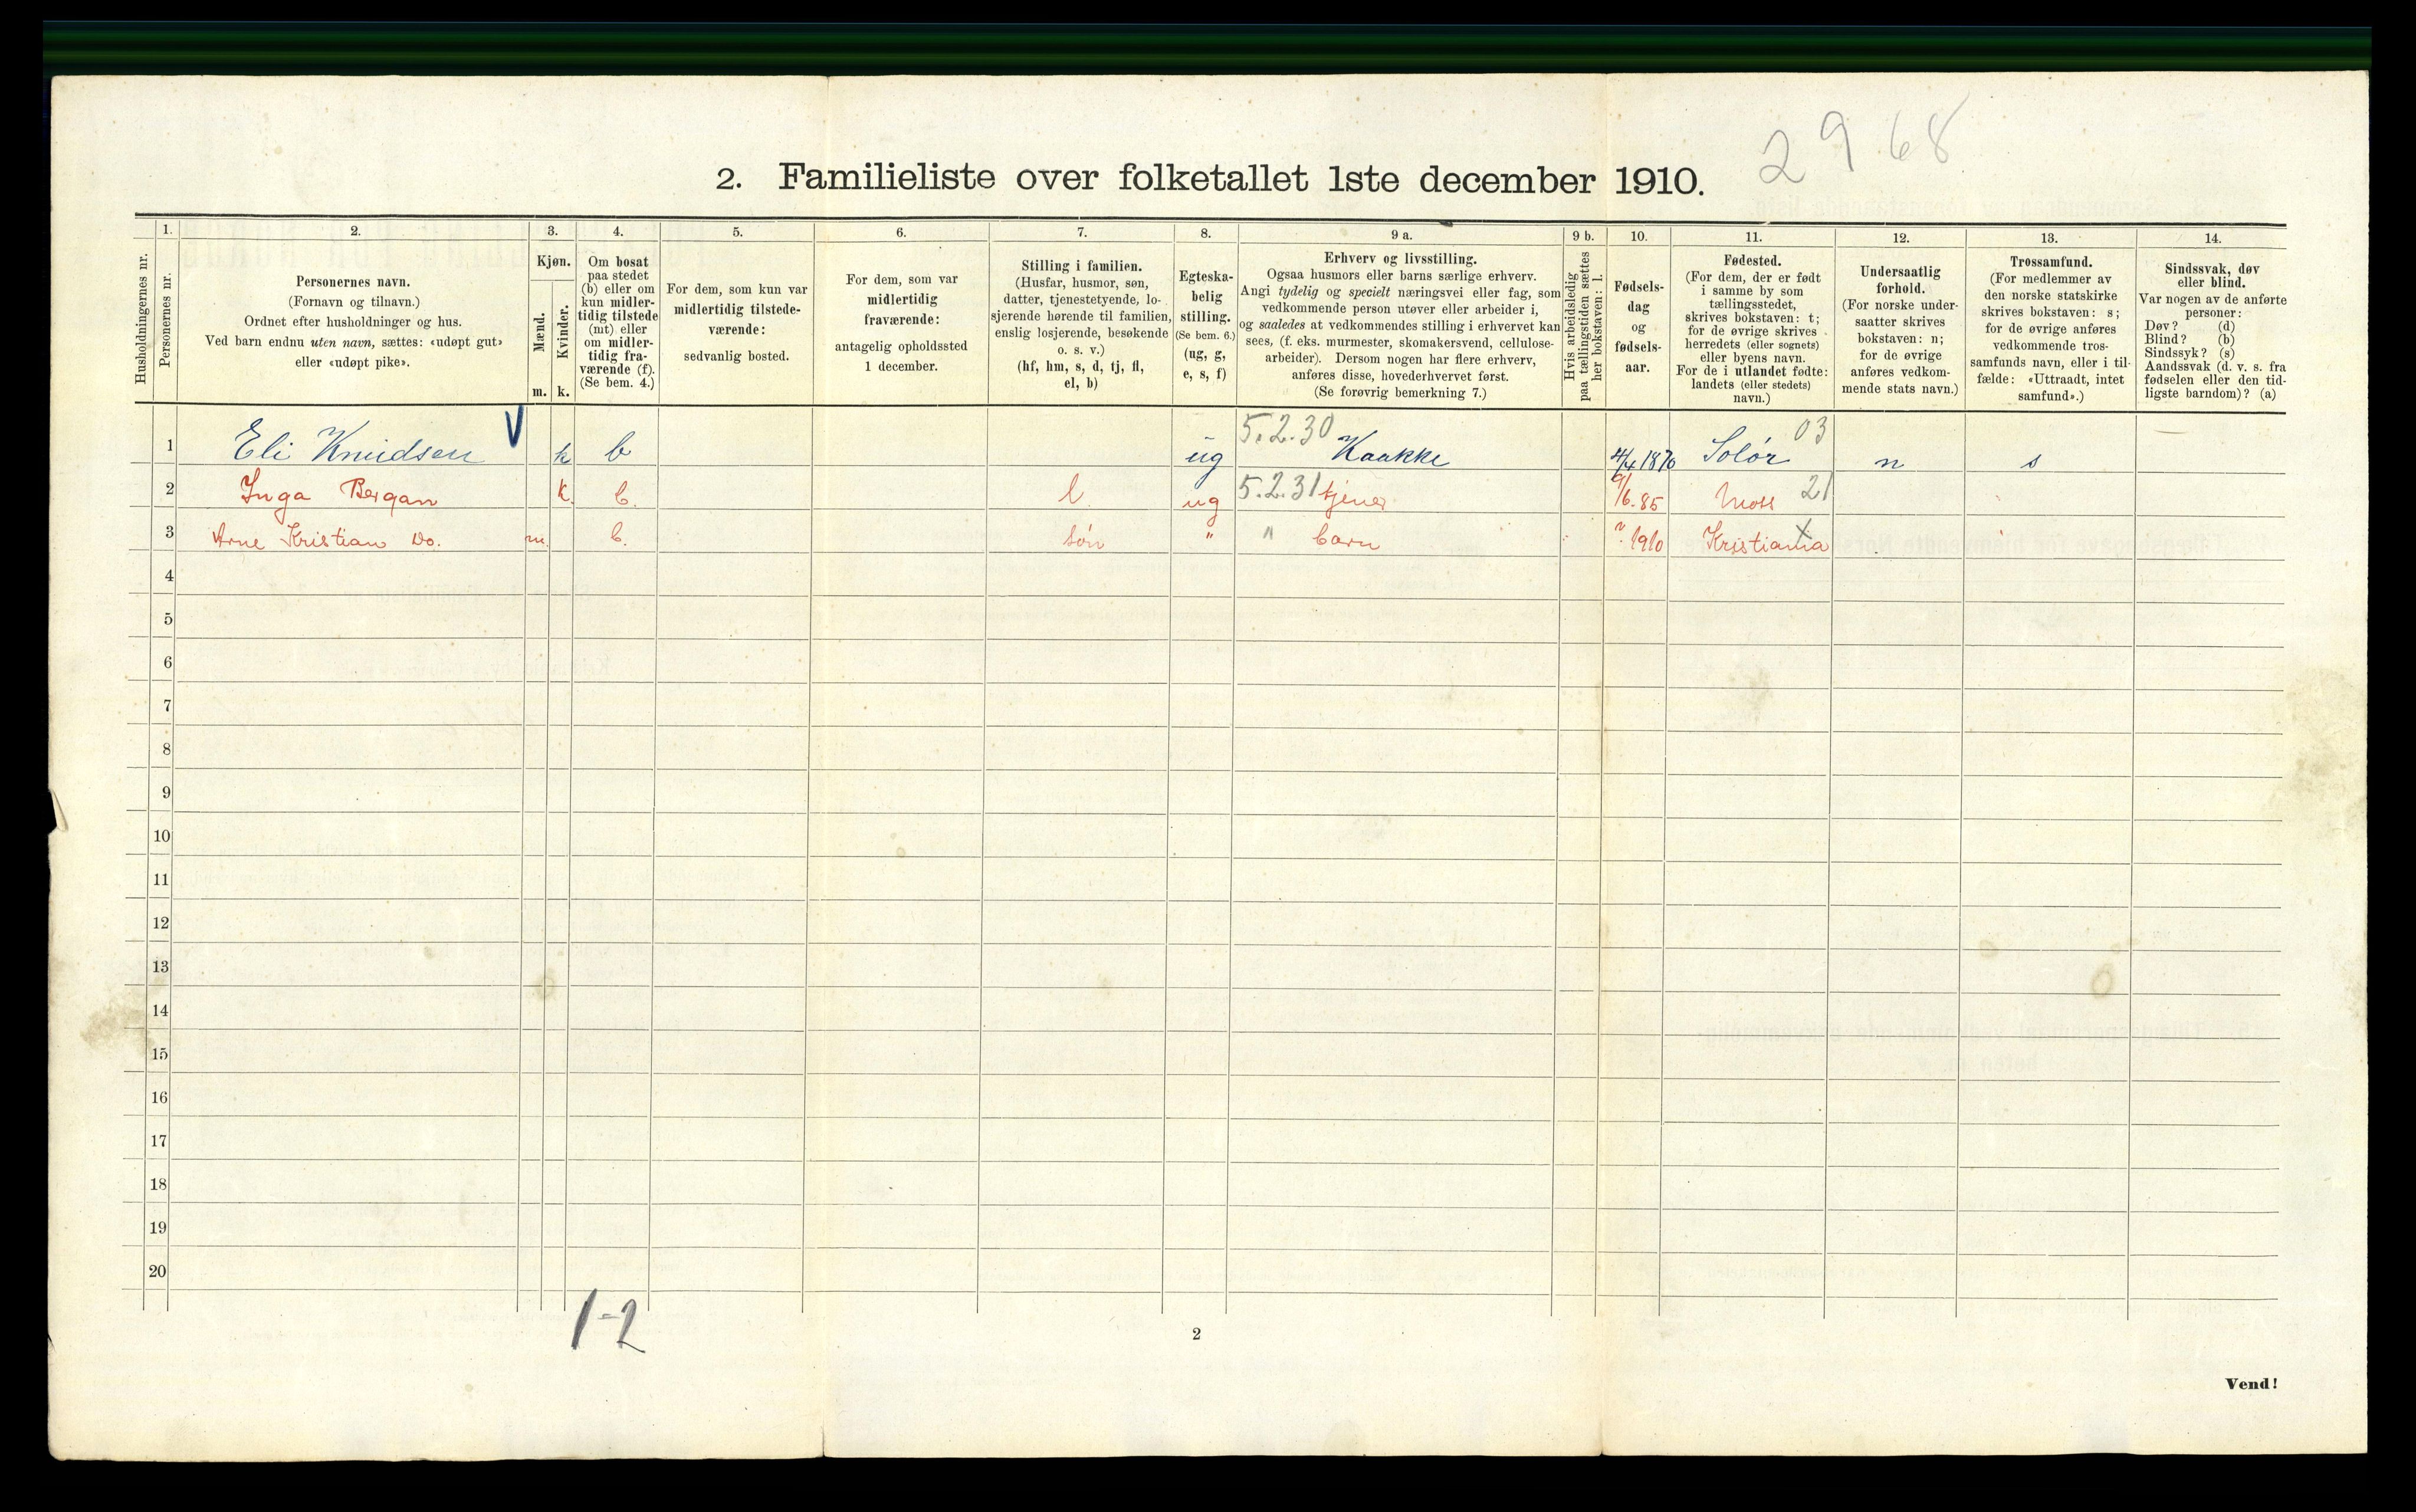 2968
2. Familieliste over folketallet 1ste december 1910.
Husholdningernes nr.
1.
Personernes nr.
2.
Personernes navn.
(Fornavn og tilnavn.)
Ordnet efter husholdninger og hus.
Ved barn endnu uten navn, sættes: «udøpt gut»
eller «udøpt pike».
3.
Kjøn.
Mænd.
Kvinder.
m. k.
4.
Om bosat
paa stedet
(b) eller om
kun midler-
tidig tilstede
(mt) eller
om midler-
tidig fra-
værende (f).
(Se bem. 4.)
5.
For dem, som kun var
midlertidig tilstede-
værende:
sedvanlig bosted.
6.
For dem, som var
midlertidig
fraværende:
antagelig opholdssted
1 december.
7.
Stilling i familien.
(Husfar, husmor, søn,
datter, tjenestetyende, lo-
sjerende hørende til familien,
enslig losjerende, besøkende
o. s. v.)
(hf, hm, s, d, tj, fl,
el, b)
8.
Egteska-
belig
stilling.
(Se bem. 6.)
(ug, g,
e, s, f)
9 a.
Erhverv og livsstilling.
Ogsaa husmors eller barns særlige erhverv.
Angi tydelig og specielt næringsvei eller fag, som
vedkommende person utøver eller arbeider i,
og saaledes at vedkommendes stilling i erhvervet kan
sees, (f. eks. murmester, skomakersvend, cellulose-
arbeider). Dersom nogen har flere erhverv,
anføres disse, hovederhvervet først.
(Se forøvrig bemerkning 7.)
9 b.
Hvis arbeidsledig
paa tællingstiden sættes
her bokstaven: l.
10.
Fødsels-
dag
og
fødsels-
aar.
11.
Fødested.
(For dem, der er født
i samme by som
tællingsstedet,
skrives bokstaven: t;
for de øvrige skrives
herredets (eller sognets)
eller byens navn.
For de i utlandet fødte:
landets (eller stedets)
navn.)
12.
Undersaatlig
forhold.
(For norske under-
saatter skrives
bokstaven: n;
for de øvrige
anføres vedkom-
mende stats navn.)
13.
Trossamfund.
(For medlemmer av
den norske statskirke
skrives bokstaven: s;
for de øvrige anføres
vedkommende tros-
samfunds navn, eller i til-
fælde: «Uttraadt, intet
samfund».)
14.
Sindssvak, døv
eller blind.
Var nogen av de anførte
personer:
Døv? (d)
Blind? (b)
Sindssyk? (s)
Aandssvak (d. v. s. fra
fødselen eller den tid-
ligste barndom)? (a)
1 Eli Knudsen V k b ug 5.2.30 Kaakke 4/4 1870 Solør 03 n s —
2 Inga Bergan k. b. l. ug 5.2.31 tjener 9/6.85 Moss 21
3 Arne Kristian Do. m. b. søn " " barn ? 1910 Kristiania X
4
5
6
7
8
9
10
11
12
13
14
15
16
17
18
19
20
1-2
2
Vend!